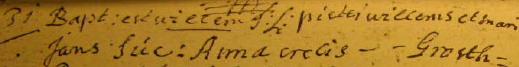 31 Bapt: est willem f: l: pieter willems et mari
Jans Sus: Anna crelis - - Grosth=